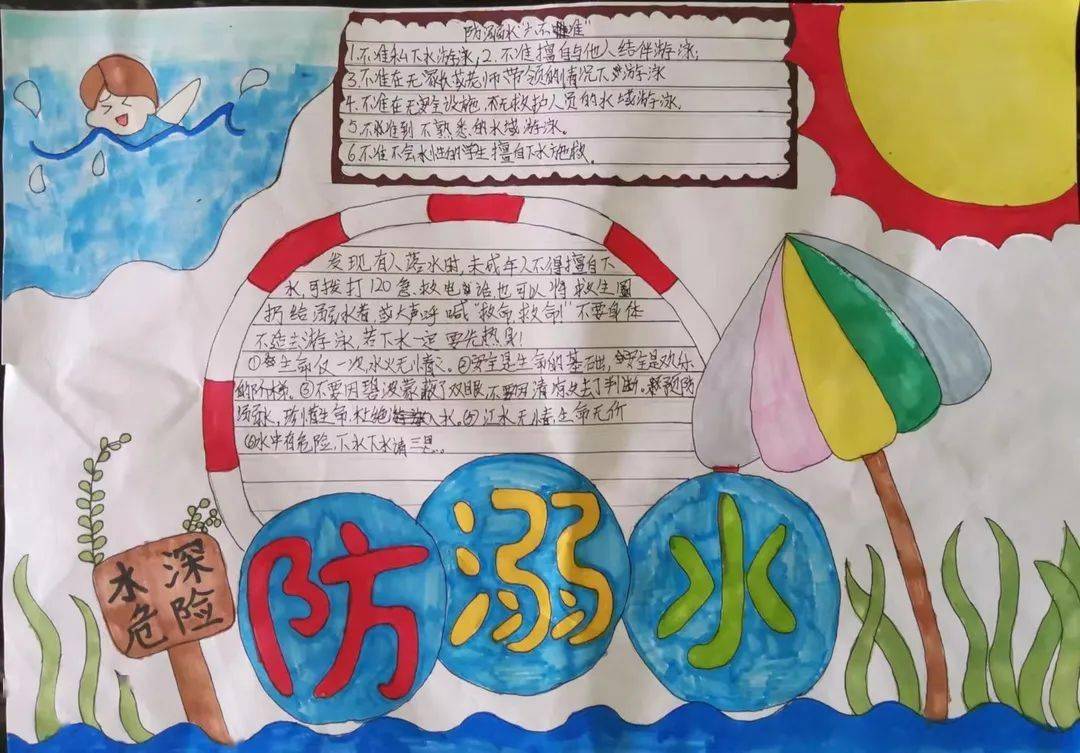 防溺水“六不准”
1.不准私下水游泳;2.不准擅自与他人结伴游泳;
3.不准在无家长或老师带领的情况下游泳
4.不准在无安全设施、无救护人员的水域游泳.
5.不准到不熟悉的水域游泳。
6.不准不会水性的学生擅自下水施救。
发现有人落水时,未成年人不得擅自下
水,可拨打120急救电话也可以将救生圈
扔给溺水者或大声呼喊“救命,救命!”不要身体
不适去游泳,若下水一定要先热身!
①生命仅一次,水火无情。②安全是生命的基础,安全是欢乐
的阶梯。③不要因碧波蒙蔽了双眼,不要因清凉失去了判断。预防
溺水,珍惜生命,杜绝入水。江水无情,生命无价
水中有危险,下水下水请三思..
防溺水
水深
危险